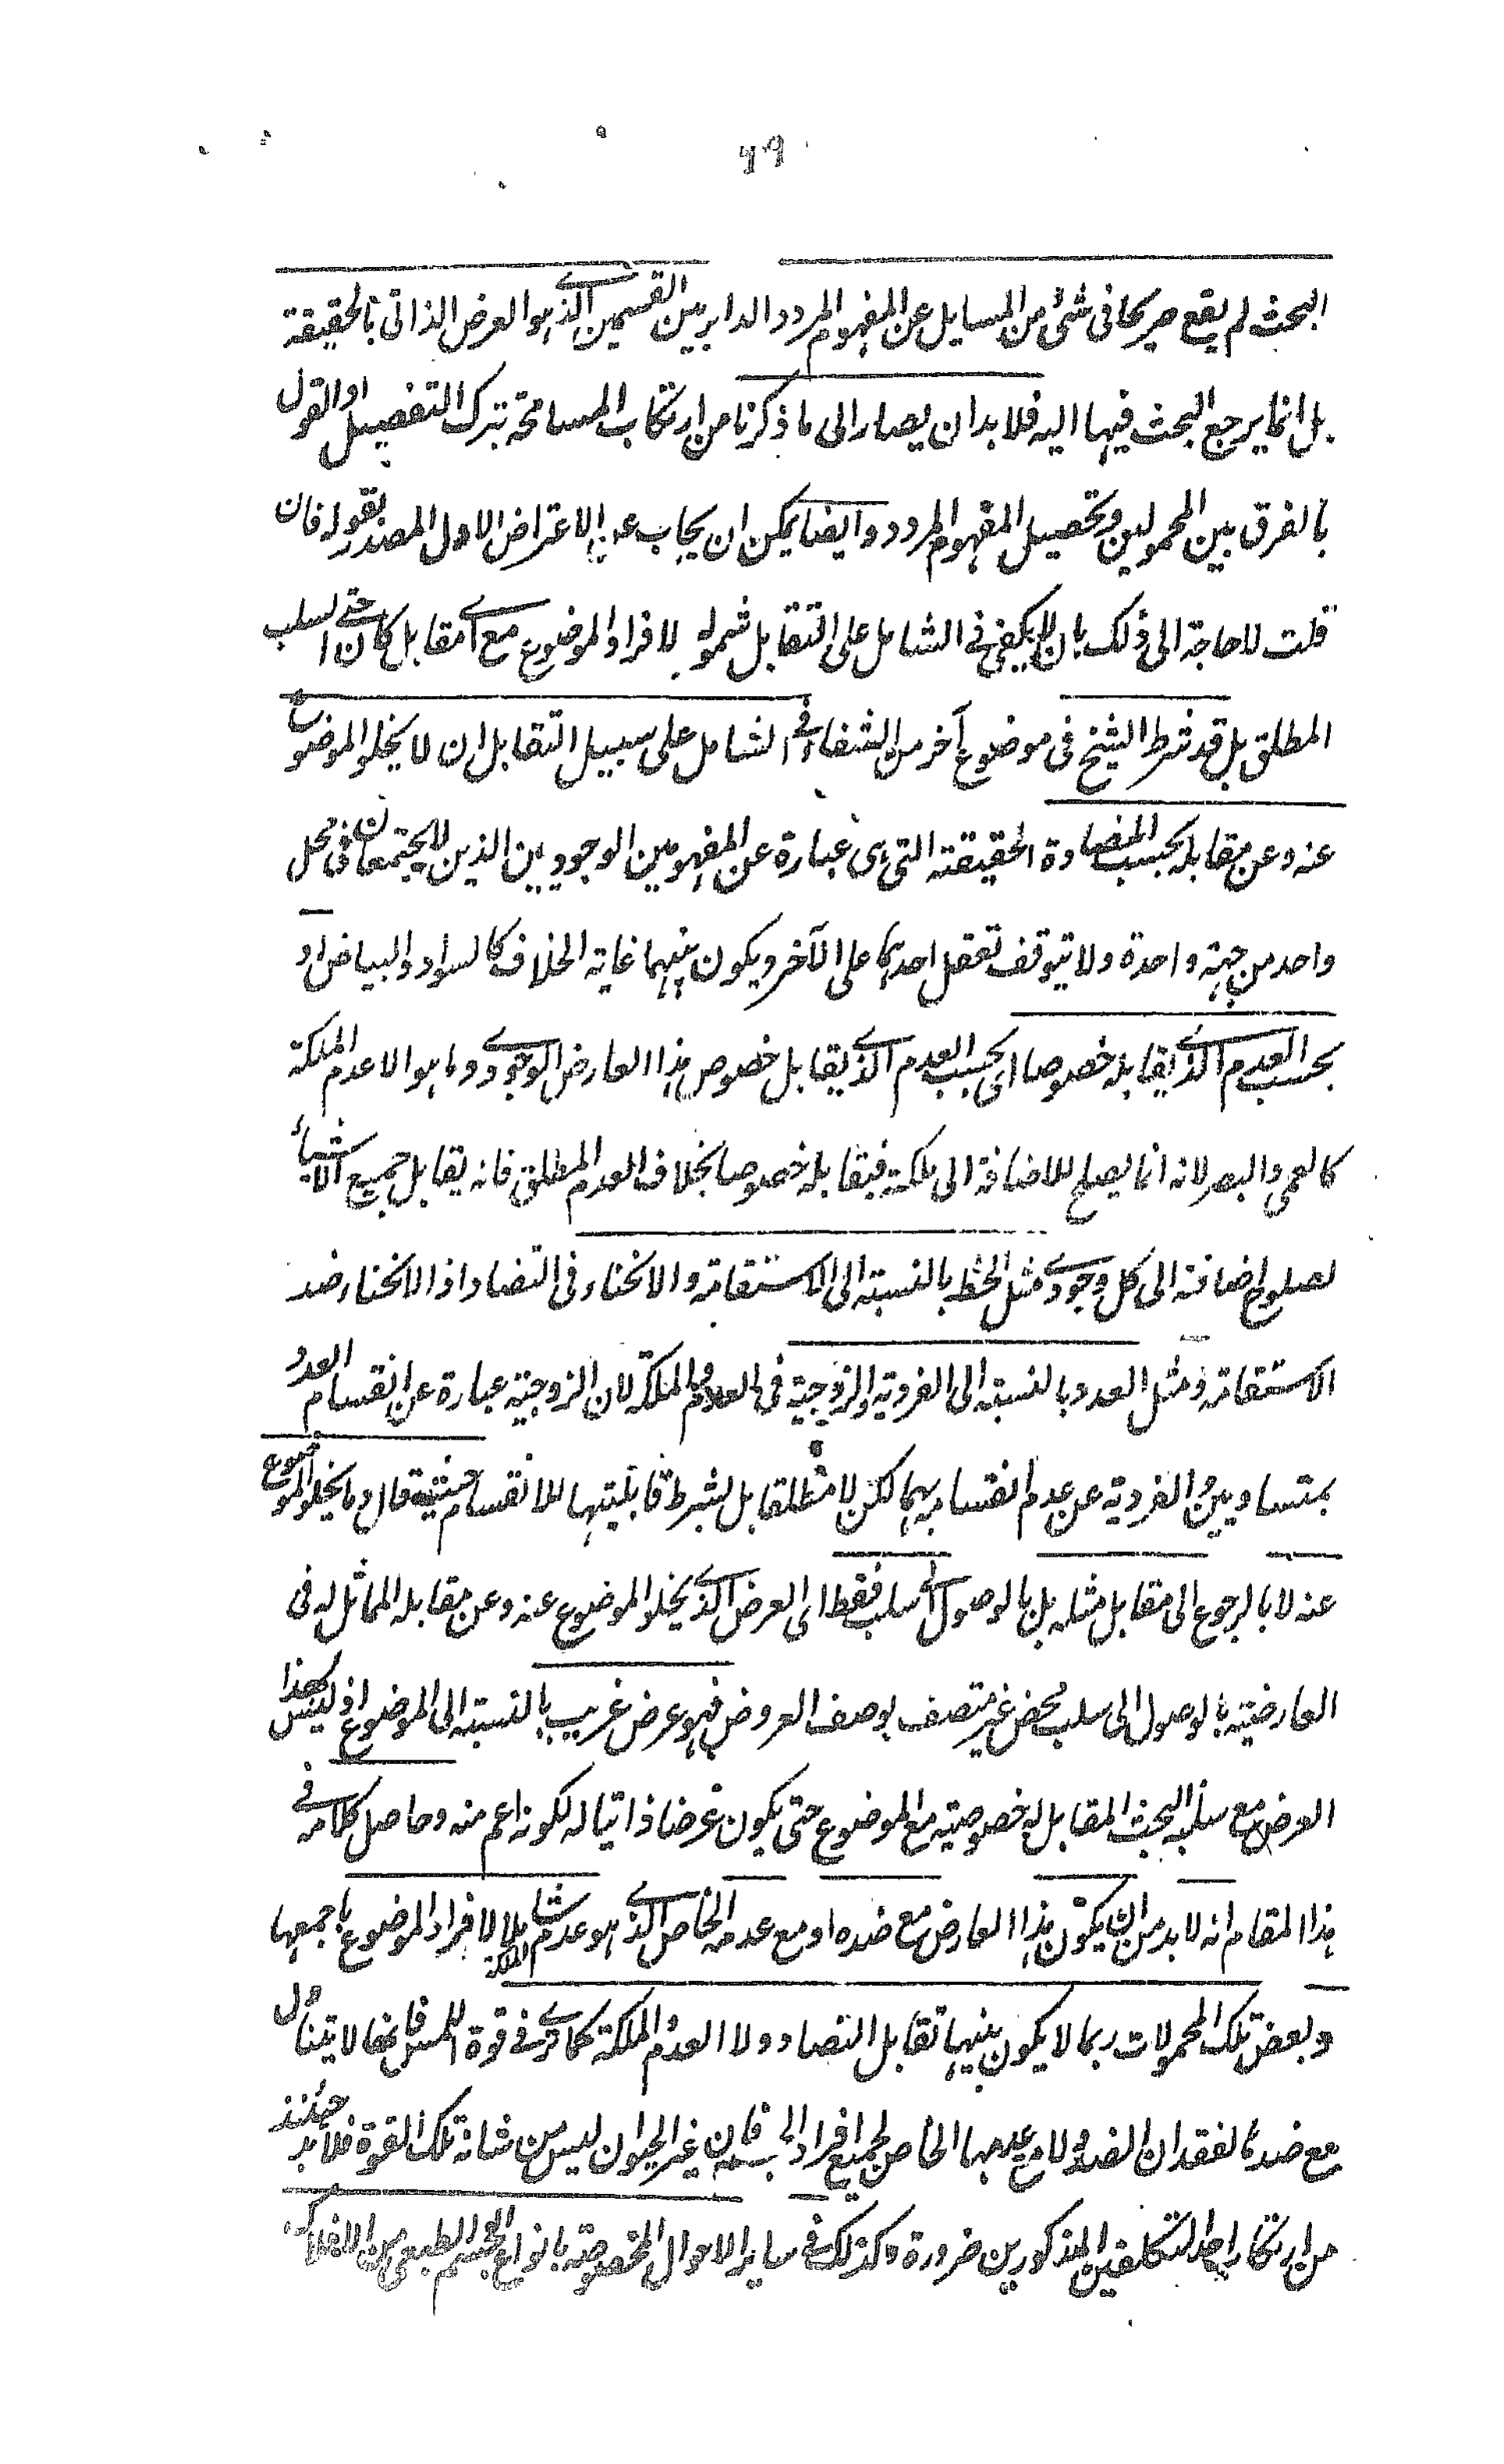 ٦٩
البحث لم يقع صريحا فى شئ من المسايل عن المفهوم المردد الداير بين القسمين الذى هو العرض الذاتى بالحقيقة
بل انما يرجع البحث فيها اليه فلا بد ان يصار الى ما ذكرنا من ارتكاب المسامحة بترك التفصيل او القول
بالفرق بين المحمولين وتحصيل المفهوم المردد وايضا يمكن ان يجاب عن الاعتراض الاول المصدر بقوله فان
قلت لا حاجة الى ذلك بان لا يكفى فى الشامل على التقابل شموله لافراد الموضوع مع اى مقابل كان حتى السلب
المطلق بل قد شرط الشيخ فى موضوع آخر من الشفاء فى الشامل على سبيل التقابل ان لا يخلو الموضوع
عنه وعن مقابله بحسب المضادة الحقيقته التى هى عبارة عن المفهومين الوجوديين الذين لا يجتمعان فى محل
واحد من جهته واحدة ولا يتوقف تعقل احدهما على الآخر ويكون بينهما غاية الخلاف كالسواد والبياض او
بحسب العدم الذى يقابله خصوصا اى بحسب العدم الذى يقابل خصوص هذا العارض الوجودى وما هو الا عدم الملكة
كالعمى والبصر لانه انما يصلح للاضافة الى ملكته فيقابله خصوصا بخلاف العدم المطلق فانه يقابل جميع الاشياء
لصلوح اضافته الى كل وجودى مثل الخط بالنسبته الى الاستقامة والانحناء فى التضاد اذ الانحناء ضد
الاستقامة ومثل العدد بالنسبته الى الفردية والزوجية فى العدم والملكة لان الزوجية عبارة عن انقسام العدد
بمتساويين والفردية عن عدم انقسامه بهما لكن لا مطلقا بل بشرط قابليتها للانقسام حينئذ قال وما يخلو الموضوع
عنه لا بالرجوع الى مقابل مثله بل بالوصول الى السلب فقط اى العرض الذى يخلو الموضوع عنه وعن مقابله المماثل له فى
العارضيته بالوصول الى سلب محض غير متصف بوصف العروض فهو عرض غريب بالنسبته الى الموضوع اذ ليس لهذا
العرض مع سلبه البحث المقابل له خصوصيته مع الموضوع حتى يكون عرضا ذاتيا له لكونه اعم منه وحاصل كلامه فى
هذا المقام انه لا بد من ان يكون هذا العارض مع ضده او مع عدمه الخاص الذى هو عدم الملكة شاملا لافراد الموضوع باجمعها
وبعض تلك المحمولات ربما لا يكون بينهما تقابل التضاد ولا العدم والملكة كما ترى فى قوة اللمس فانها لا يتناول
مع ضدها لفقدان الضد ولا مع عدمها الخاص لجميع افراد الجسم فان غير الحيوان ليس من شانه تلك القوة فلا بد حينئذ
من ارتكاب احد التكلفين المذكورين ضرورة وكذلك فى ساير الاحوال المخصوصة بانواع الجسم الطبعى من الافلاك